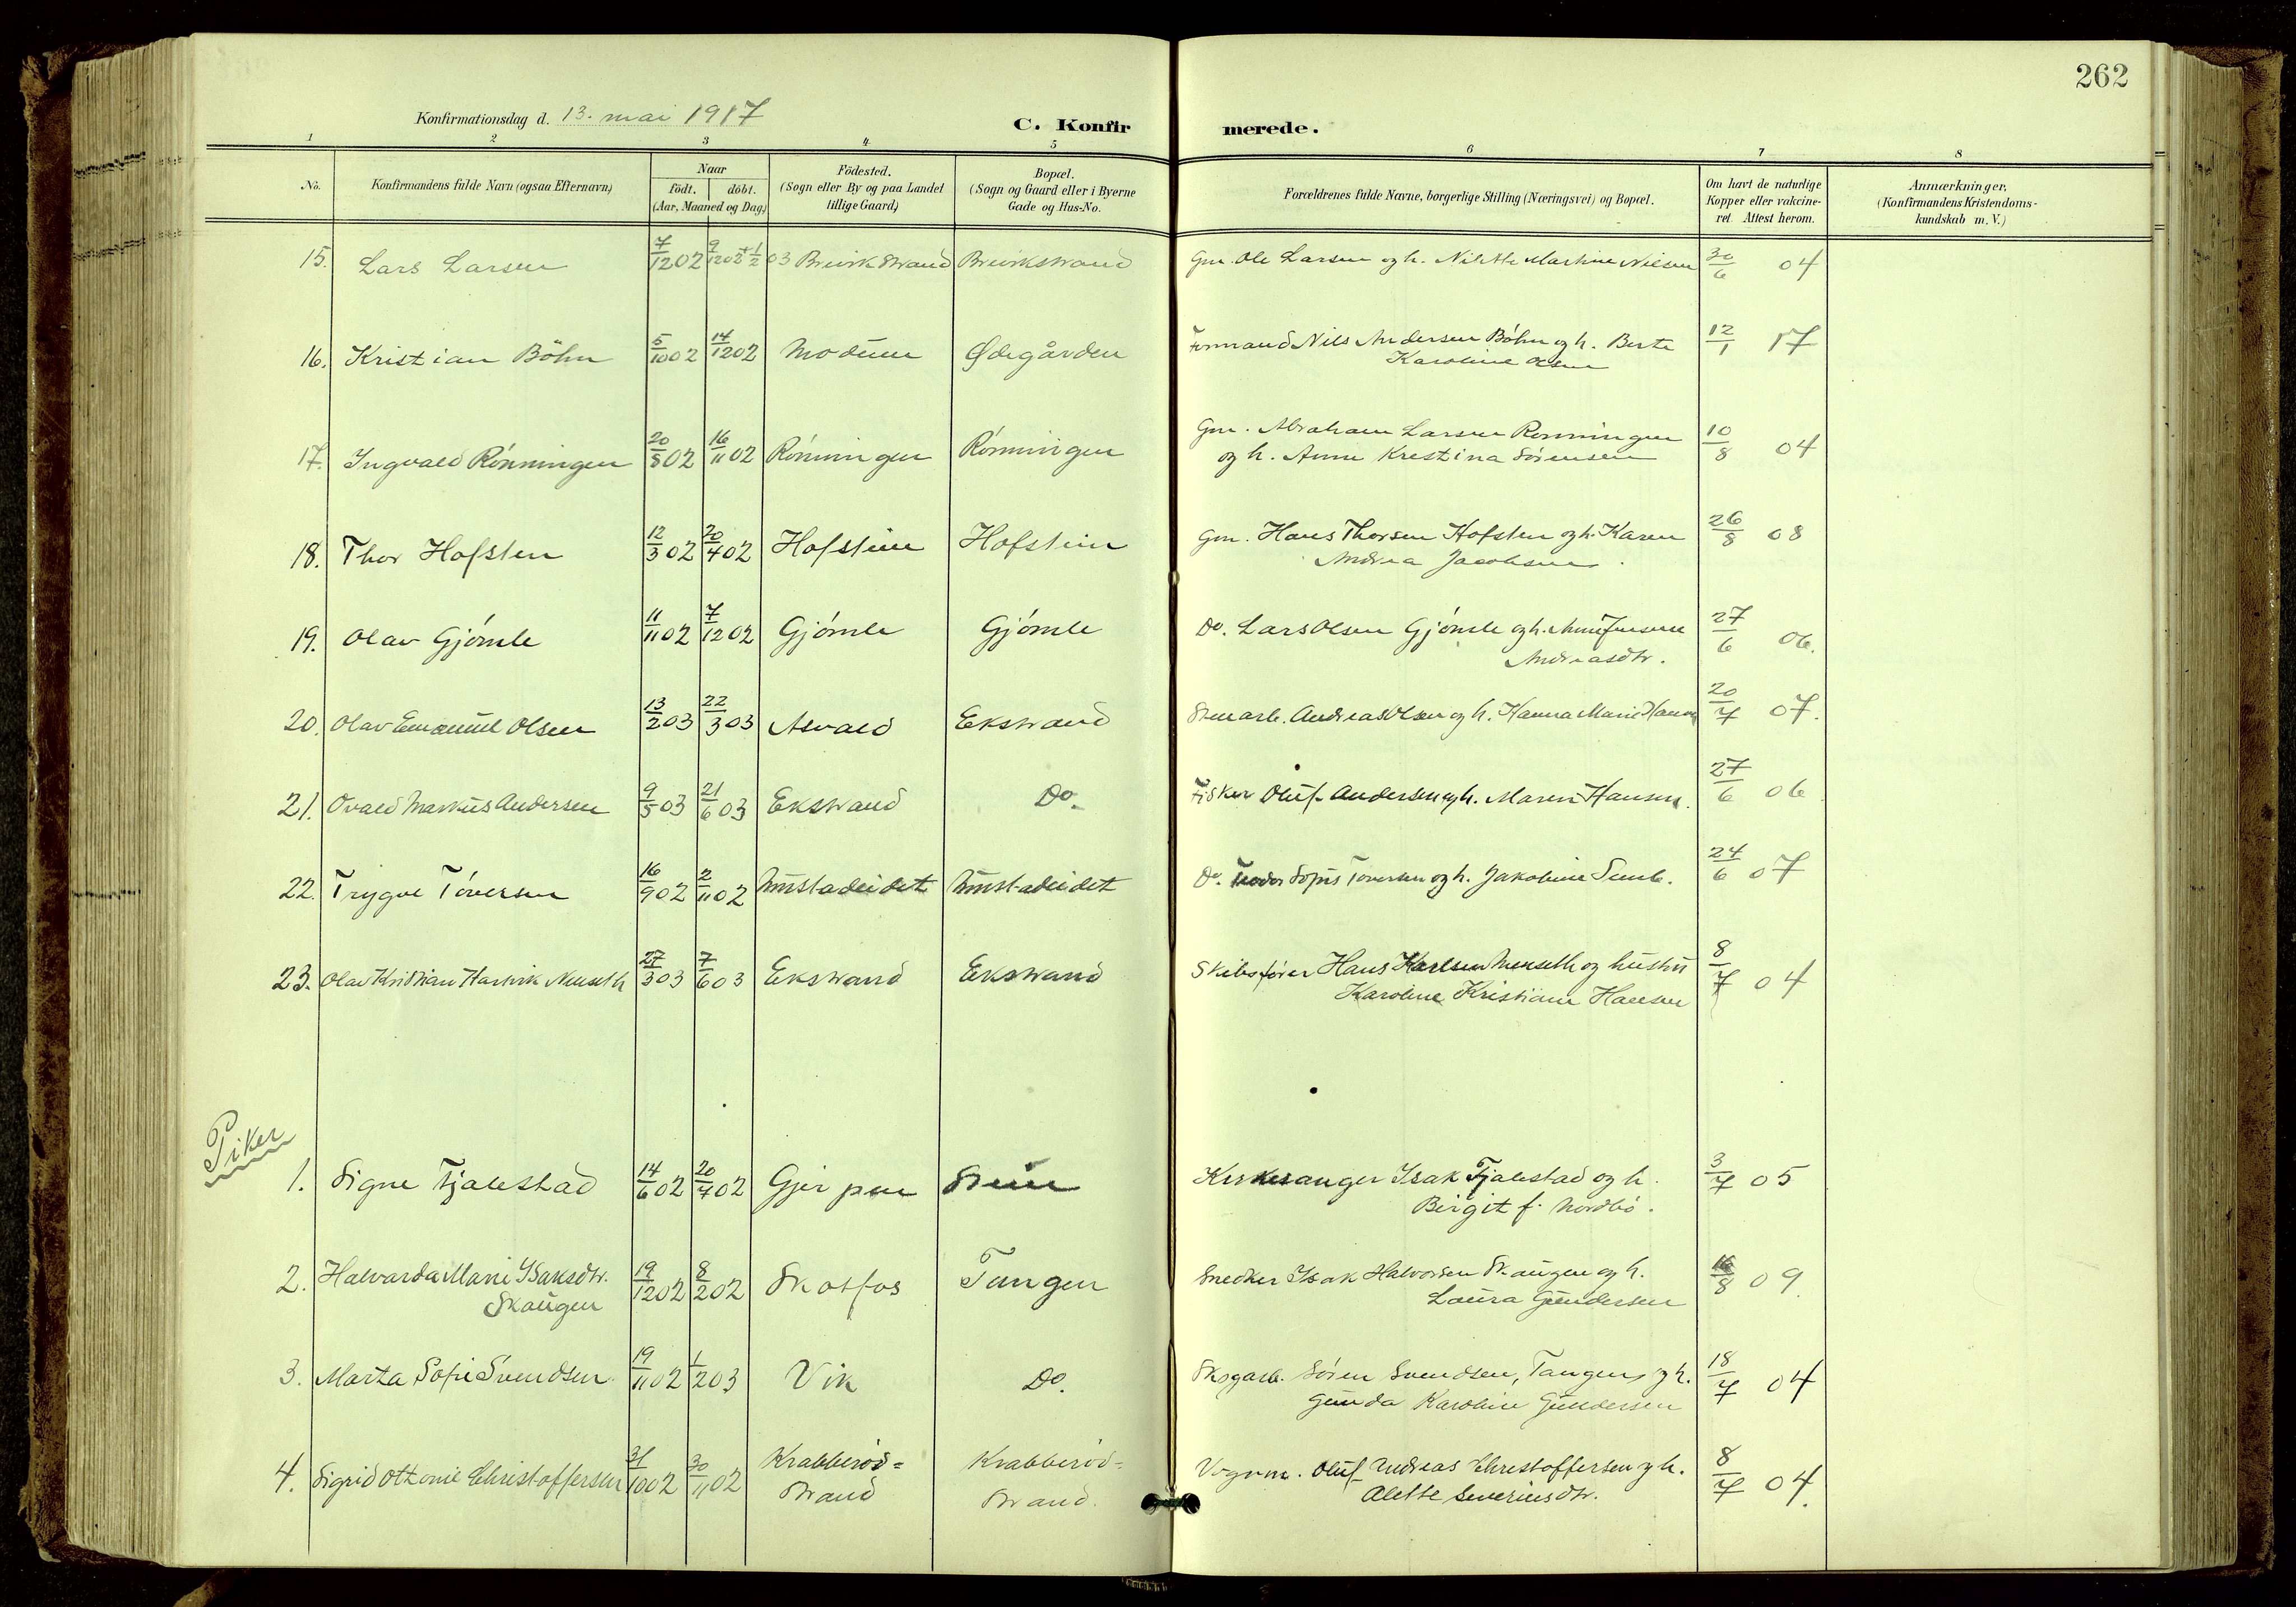 262
Konfirmationsdag d. 13. mai 1917
C. Konfirmerede.
1 2 3 4 5 6 7 8
No. Konfirmandens fulde Navn (ogsaa Efternavn) Naar født. døbt. (Aar, Maaned og Dag) Födested. (Sogn eller By og paa Landet tillige Gaard) Bopæl. (Sogn og Gaard eller i Byerne Gade og Hus-No. Forældrenes fulde Navne, borgerlige Stilling (Næringsvei) og Bopæl. Om havt de naturlige Kopper eller vakcineret. Attest herom. Anmærkninger. (Konfirmandens Kristendomskundskab m. V.)
15. Lars Larsen 7/12 02 9/12 02 + 1/2 03 Brevikstrand Brevikstrand Gm. Ole Larsen og h. Nilette Martine Nilsen 30/6 04
16. Kristian Böhn 5/10 02 14/12 02 Modum Ødegården Formand Nils Andersen Böhn og h. Berte
Karoline Olsen 12/1 17
17. Ingvald Rónningen 20/8 02 16/11 02 Rónningen Rónningen Gm. Abraham Larsen Ronningen
og h. Anne Kristina Sórensen 10/8 04
18. Thor Hofsten 12/3 02 20/4 02 Hofstein Hofstein Gm. Hans Thorsen Hofsten og h. Karen
Andrea Jacobsen 26/8 08
19. Olav Gjómle 11/11 02 7/12 02 Gjómle Gjómle Do. Lars Olsen Gjómle og h. Anne
Andreasdtr. 27/6 06.
20. Olav Emanuel Olsen 13/2 03 22/3 03 Asvald Ekstrand Stenarb. Andreas Olsen og h. Hanna Marie 20/7 07.
21. Ovald Markus Andersen 9/5 03 21/6 03 Ekstrand Do. Fisker Oluf Andersen og h. Maren Hansen. 27/6 06
22. Trygve Tóversen 16/9 02 2/11 02 Do. Tóversen og h. Jakobine 24/6 07
23. Olav Kristian Henrik Menseth 27/3 03 7/6 03 Ekstrand Ekstrand Skibsfører Hans Karlsen Menseth og hustru
Karoline Kristiane Hansen 8/7 04
Piker
1. Signe Fjalestad 14/6 02 20/7 02 Gjerpen Stein Kirkesanger Isak Fjalestad og h.
Birgit f. Nordbó. 3/7 05
2. Halvarda Marie Isaksdtr.
Skaugen 19/12 02 8/2 02 Skotfos Tangen Snedker Isak Halvorsen Skaugen og h.
Laura Gundersen 16/8 09
3. Marta Sofie Svendsen 19/11 02 1/2 03 Vik Do. Skogarb. Sóren Svendsen, Tangen og h.
Gunda Karoline Gundersen 18/7 04
4. Sigrid Ottonie Christoffersen 31/10 02 30/11 02 Krabberód=
strand Krabberód=
strand. Vognm. Oluf Andreas Christoffersen og h.
Alette Severinsdtr. 8/7 04.